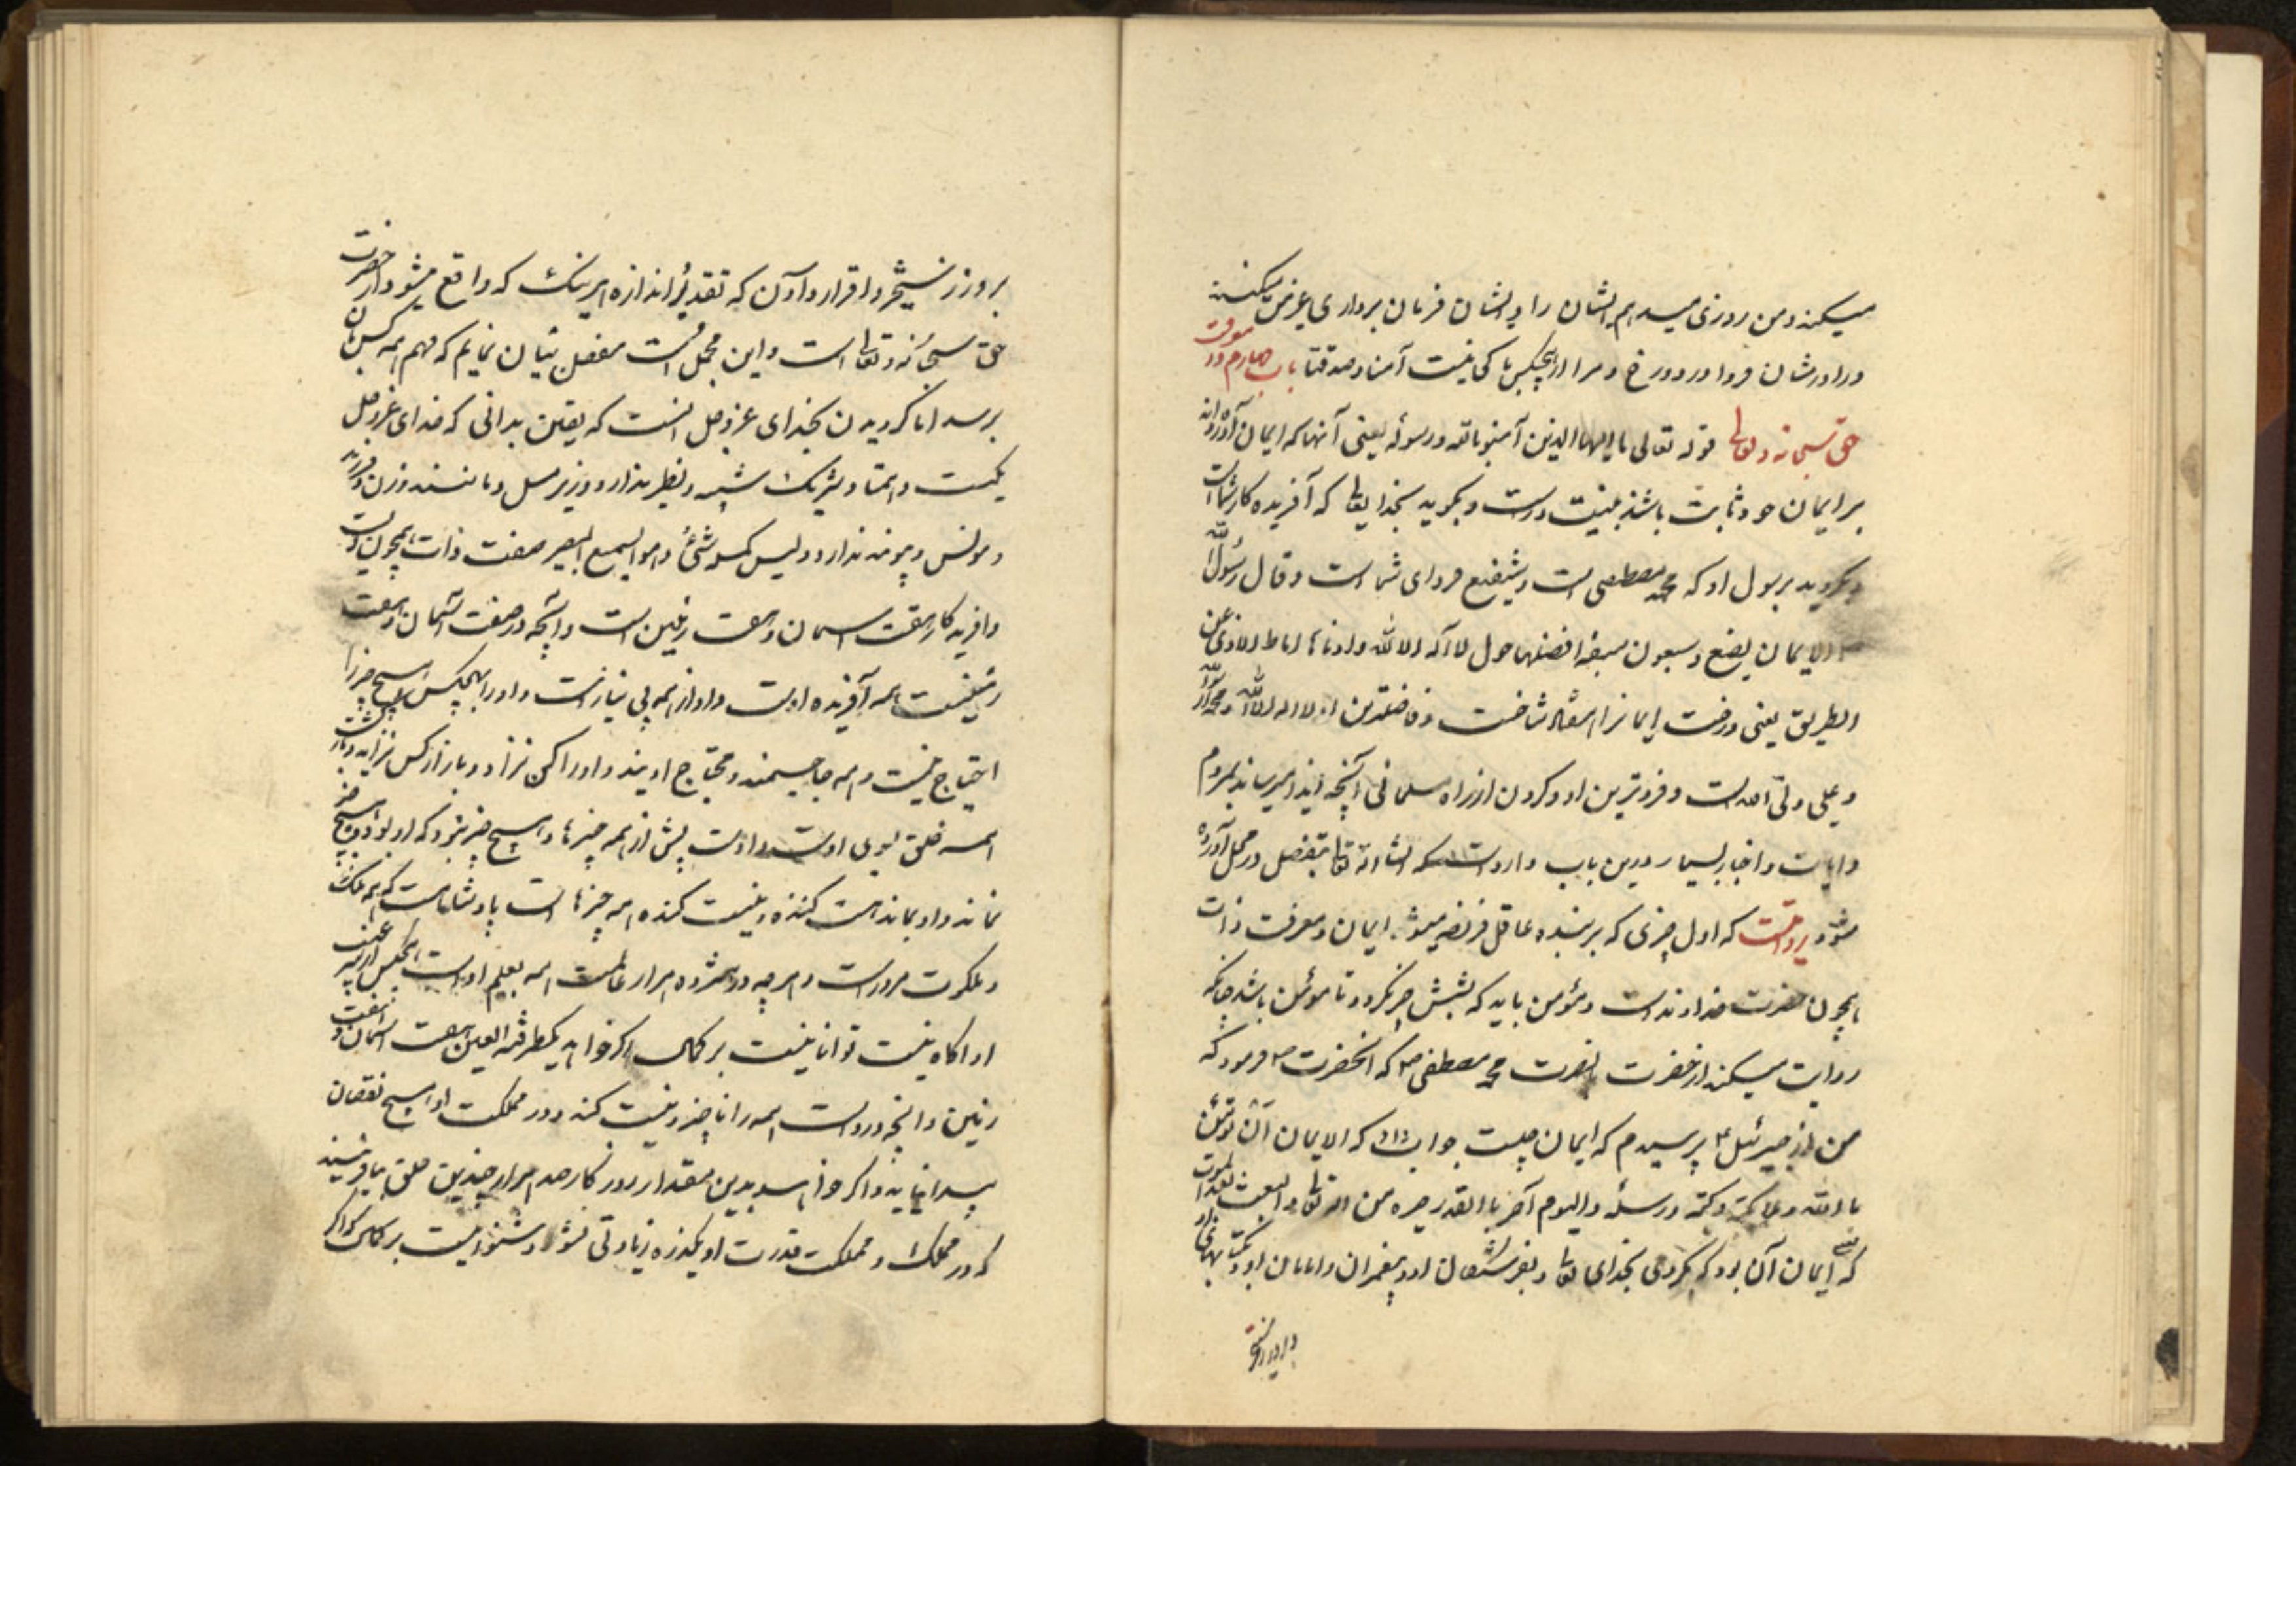 میکنند و من روزی میدهم ایشان را و ایشان فرمان برداری غیر من میکنند
فردا در دوزخ و مرا از هیچکس باکی نیست آمنا و صدقنا باب چهارم در معرفت
حق سبحانه و تعالی قوله تعالی یا ایها الذین آمنو بالله و رسوله یعنی آنها که ایمان آورده‌اند
بر ایمان خود ثابت باشند بنیت درست و بگروید بخدایتعالی که آفریده کار شما است
و بگروید برسول او که محمد مصطفی است و شفیع فردای شما است و قال رسول الله
الایمان بضع و سبعون افضلها قول لا اله الا الله و ادناها اماطة الاذی عن
الطریق یعنی درخت ایمانرا هفتاد شاخست و فاضلترین او لا اله الا الله محمد رسول الله
و علی ولی الله است و فروترین او دور کردن از راه مسلمانی آنچه ایذا میرساند بمردم
و ایات و اخبار بسیار درین باب وارد است که انشا الله تعالی بتفصیل در محل آورده
شود و روایت است که اول چیزی که بر بنده عاقل فریضه میشود ایمان و معرفت ذات
بیچون حضرت خداوند است و مؤمن باید که بشش چیز بگرود تا مومن باشد چنانکه
روایت میکنند از حضرت محمد مصطفی ص که انحضرت ص فرمود که
من از جبرئیل ع پرسیدم که ایمان چیست جواب داد که الایمان ان تؤمن
بالله و ملائکته و کتبه و رسله و الیوم آخر با القدر خیره من الله تعالی و البعث بعد الموت
یعنی که ایمان آن بود که بگروی بخدای تعالی و بفرشتکان او و پیغمبران و امامان او و بکتابهای او
بروز رستخیز و اقرار و آوردن که تقدیر و اندازه هر نیک که واقع میشود از حضرت
حق سبحانه و تعالی است و این مجمل است مفصل بیان نمایم که فهم همه کس بآن
برسد اما گرویدن بخدای عز و جل انست که یقین بدانی که خدای عز و جل
یکیست و همتا و شریک و شبیه و نظیر ندارد و وزیر و مثل و مانند و زن و فرزند
و مونس و پیوند ندارد و لیس کمثله شیء و هو السمیع البصیر صفت ذات بیچون اوست
و افریدکار هفت اسمان و هفت زمین است و انچه در هفت آسمان و هفت
زمینست همه آفریده اوست و او از همه بی نیاز است و او را بهیچکس و بهیچ چیز
احتیاج نیست و همه محتاج اویند و او را کس نزاد و باز از کس نزاید و بازگشت
همه خلق بسوی اوست و اوست پیش از همه چیزها و هیچ چیز نبود که او بود و هیچ چیز
نماند و او بماند هست کننده و نیست کننده همه چیزها است پادشاهست که همه ملک
و ملکوت مر او راست و هر چه در هژده هزار عالمست همه بعلم اوست هیچکس از غیب
او اگاه نیست توانا نیست بر کمال اگر خواهد بیکطرفة العین هفت اسمان و هفت
زمین و انچه در اوست همه را ناچیز و نیست کند و در مملکت او هیچ نقصان
پیدا نیاید و اگر خواهد بدین مقدار روزکار صد هزار چندین خلق بیافریند
که در ملک و مملکت و قدرت او یکذره زیادتی نشود و شنوا است بر کمال که اگر